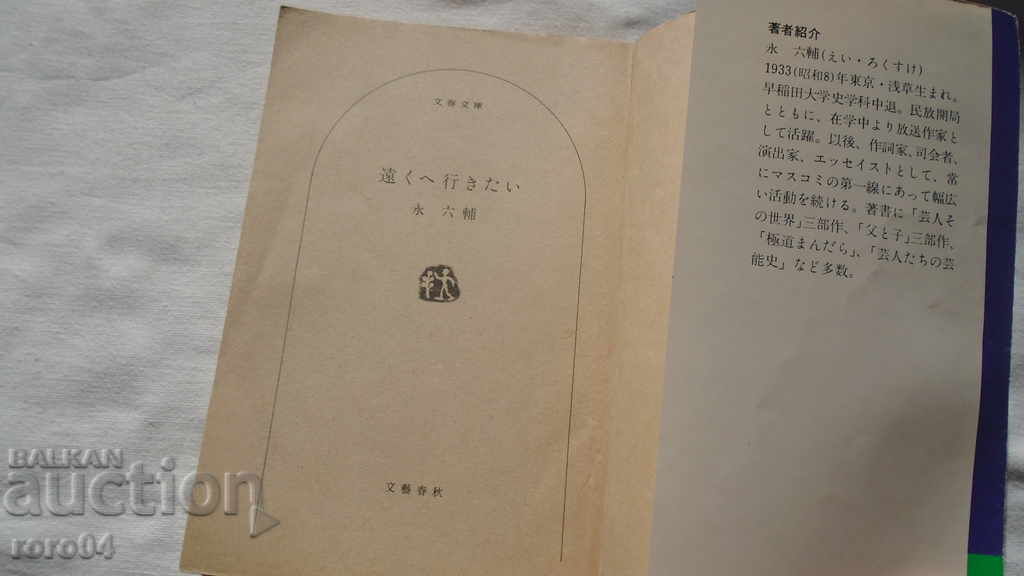 文春文庫
遠くへ行きたい
永 六輔
文藝春秋
著者紹介
永 六輔(えい・ろくすけ)
1933(昭和8)年東京・浅草生まれ。
早稲田大学史学科中退。民放開局
とともに、在学中より放送作家と
して活躍。以後、作詞家、司会者、
演出家、エッセイストとして、常
にマスコミの第一線にあって幅広
い活動を続ける。著書に「芸人そ
の世界」三部作、「父と子」三部作、
「極道まんだら」、「芸人たちの芸
能史」など多数。
BALKAN
auction
roro04